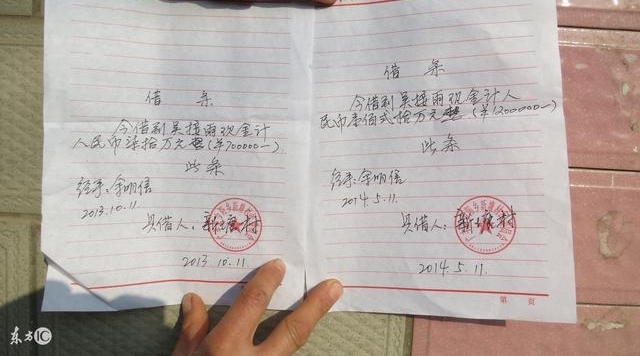 借 条
今借到吴接雨现金计
人民币柒拾万元整(¥700000—)
此条
经手:余明信
2013.10.11.
具借人:新塘村
2013 10.11.
借 条
今借到吴接雨现金计人
民币壹佰弍拾万元整(¥1200000—)
此条
经手:余明信
2014.5.11.
具借人:新塘村
2014.5.11.
第 页
东方IC